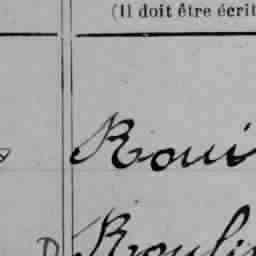 (Il doit être écrit
Roui
D Roulin